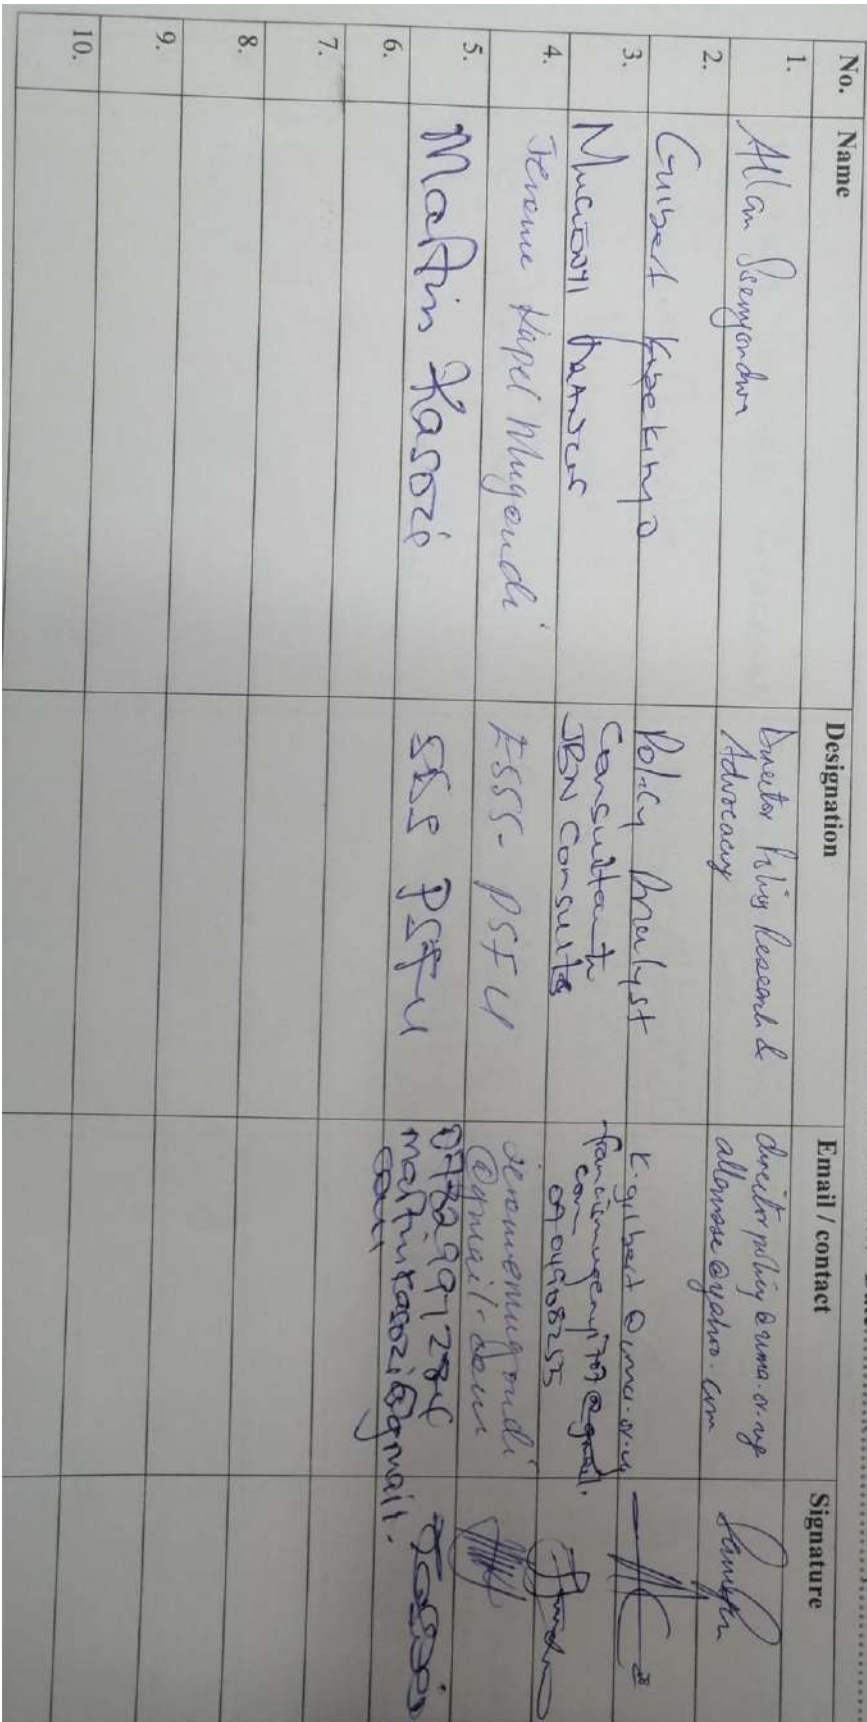 No. Name Designation Email / contact Signature
1. Allan Ssemyondwa Director Policy Research & director policy@uma.or.ug
Advocacy allansse@yahoo.com
2. Guisbert Kisekinyo Policy Analyst k.gilbert@uma.or.ug
3. FRANCIS Consultant
JBN Consults francismugenyi707@gmail.
com
4. Jerome Kapel Mugondi ESSS- PSFU jeromemugondi
@gmail.com
5. Martin Kasozi SSS PSFU
martinkasozi@gmail.
com
6.
7.
8.
9.
10.